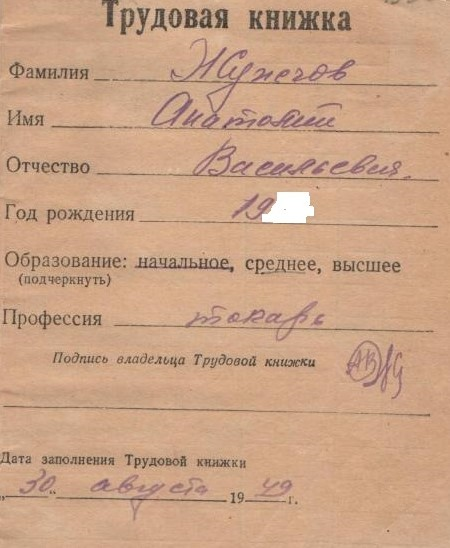 Трудовая книжка
Фамилия
Имя Анатолий
Отчество Васильевич
Год рождения 19
Образование: начальное, среднее, высшее
(подчеркнуть)
Профессия токарь
Подпись владельца Трудовой книжки
Дата заполнения Трудовой книжки
„30“ августа 1949 г.